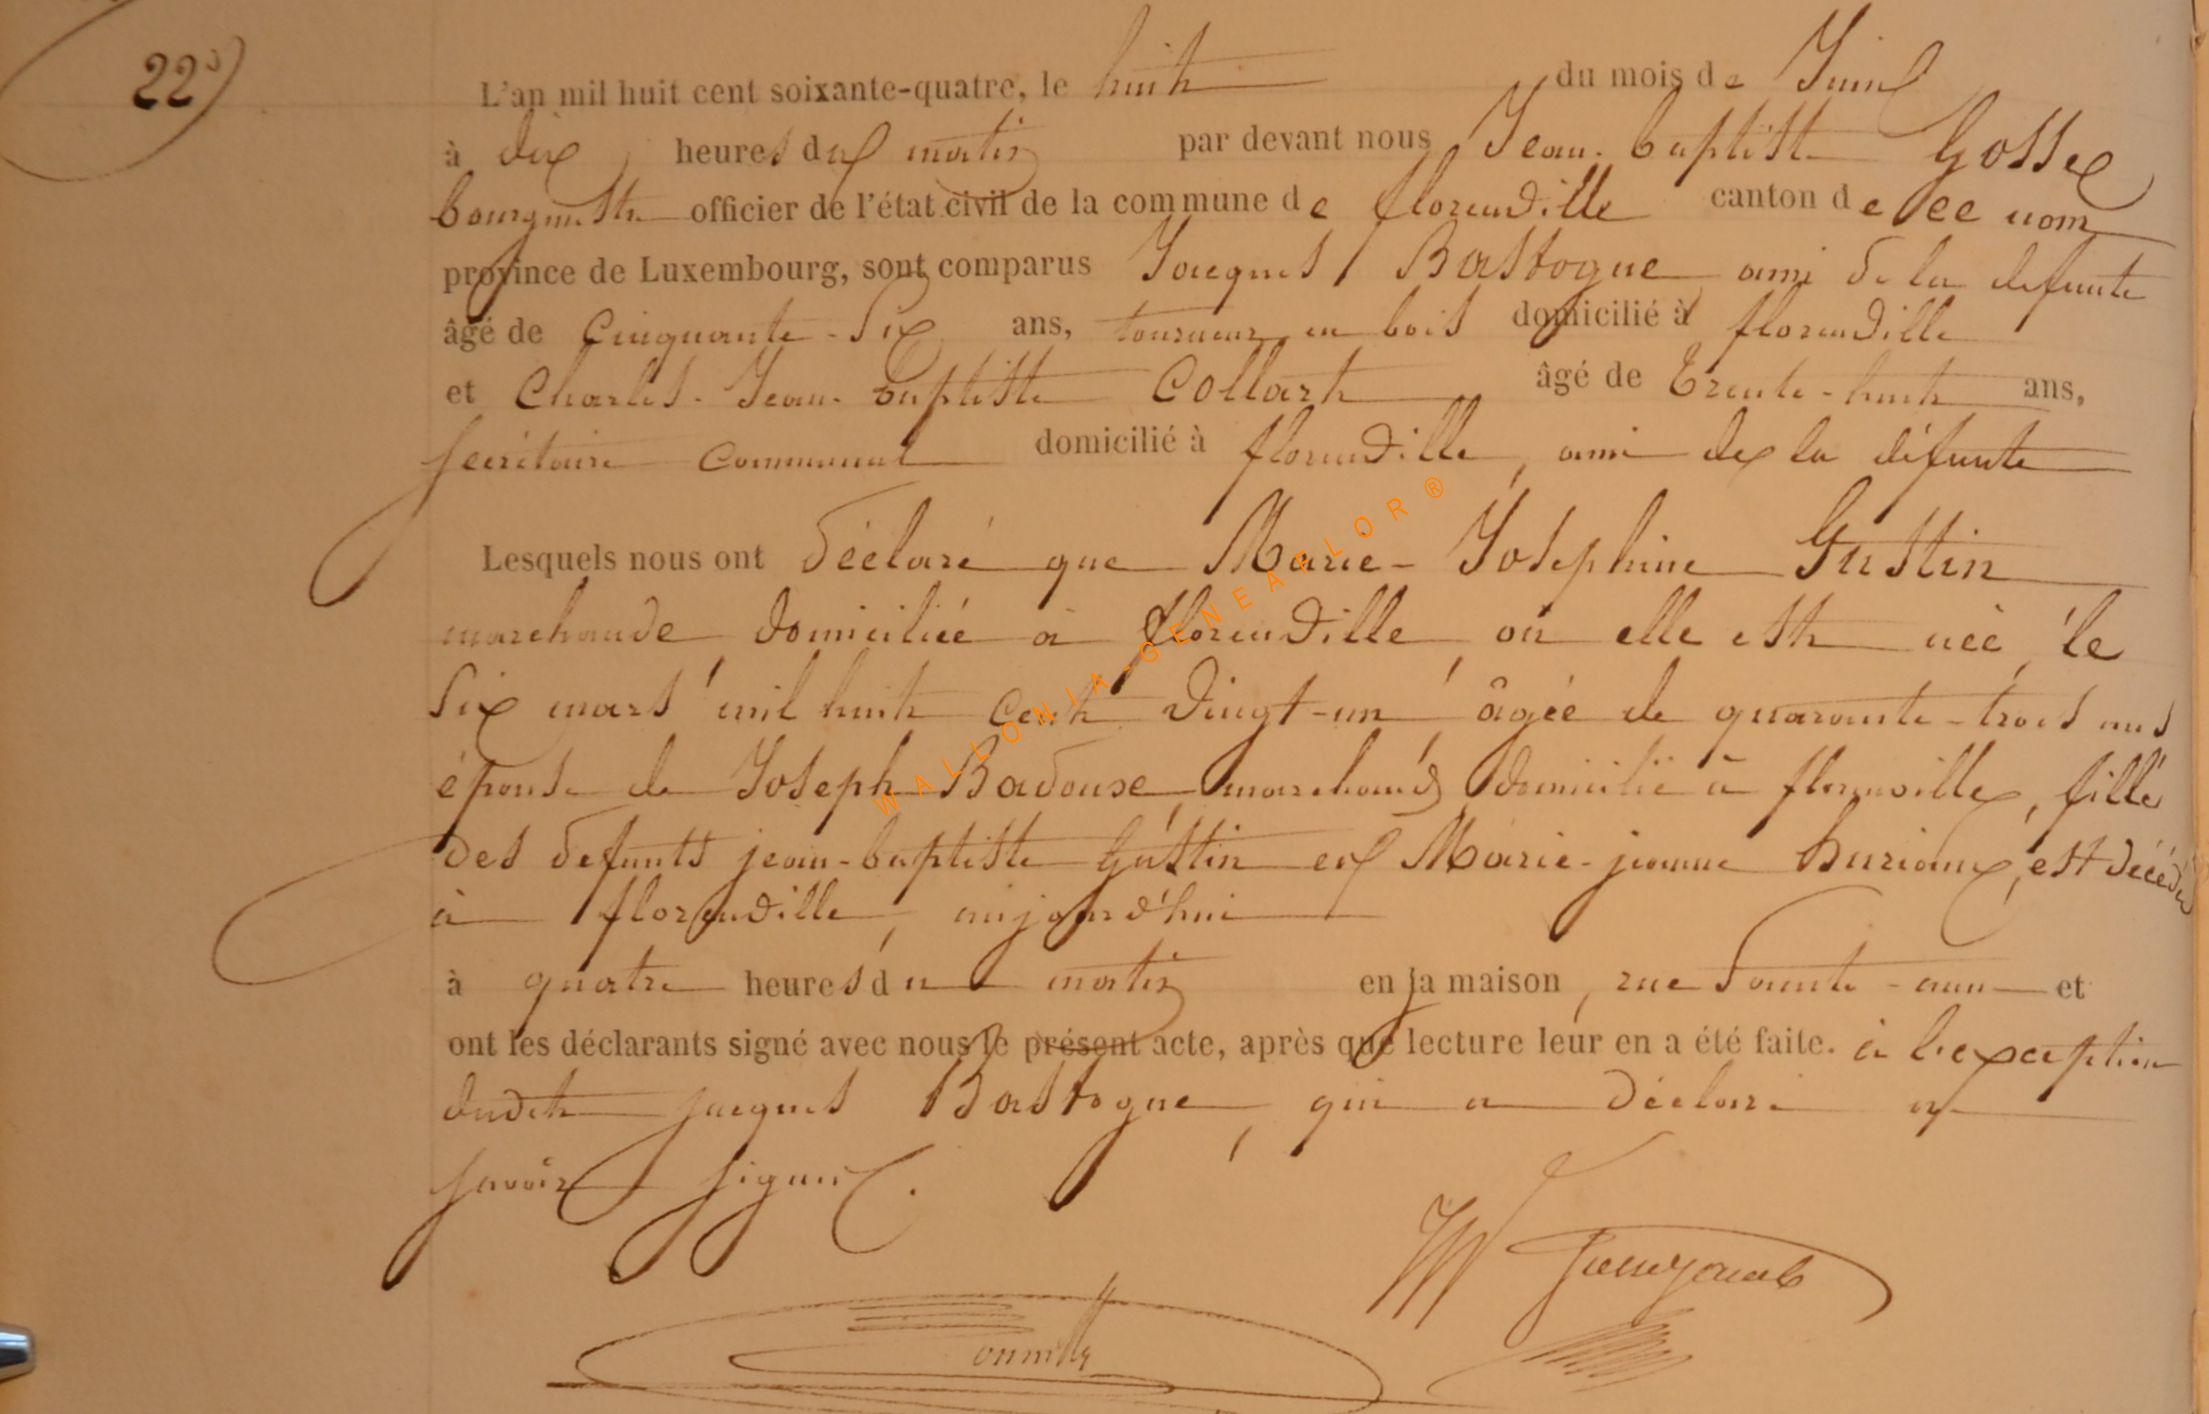 22
L'an mil huit cent soixante-quatre, le huit du mois de Juin
à dix heures du matin par devant nous Jean-baptiste Gosse
bourgmestre officier de l'état civil de la commune de florenville canton de ce nom
province de Luxembourg, sont comparus Jacques Bastogne ami de la défunte
âgé de Cinquante-Six ans, tourneur en bois domicilié à florenville
et Charles-Jean-baptiste Collart âgé de trente-huit ans,
secrétaire communal domicilié à florenville, ami de la défunte
Lesquels nous ont déclaré que Marie-Joséphine Gustin
marchande domiciliée à florenville où elle est née, le
Six mars mil huit Cent Vingt-un, âgée de quarante-trois ans
épouse de Joseph Badouse, marchand, domicilié à florenville, fille
des défunts jean-baptiste Gustin et Marie-jeanne huriaux, est décédée
à florenville, aujourd'hui
à quatre heures du matin en sa maison, rue Sainte-anne et
ont les déclarants signé avec nous le présent acte, après que lecture leur en a été faite. à l'exception
dudit jacques Bastogne, qui a déclaré ne
savoir signer.
WALLONIA-GENEAFLOR®